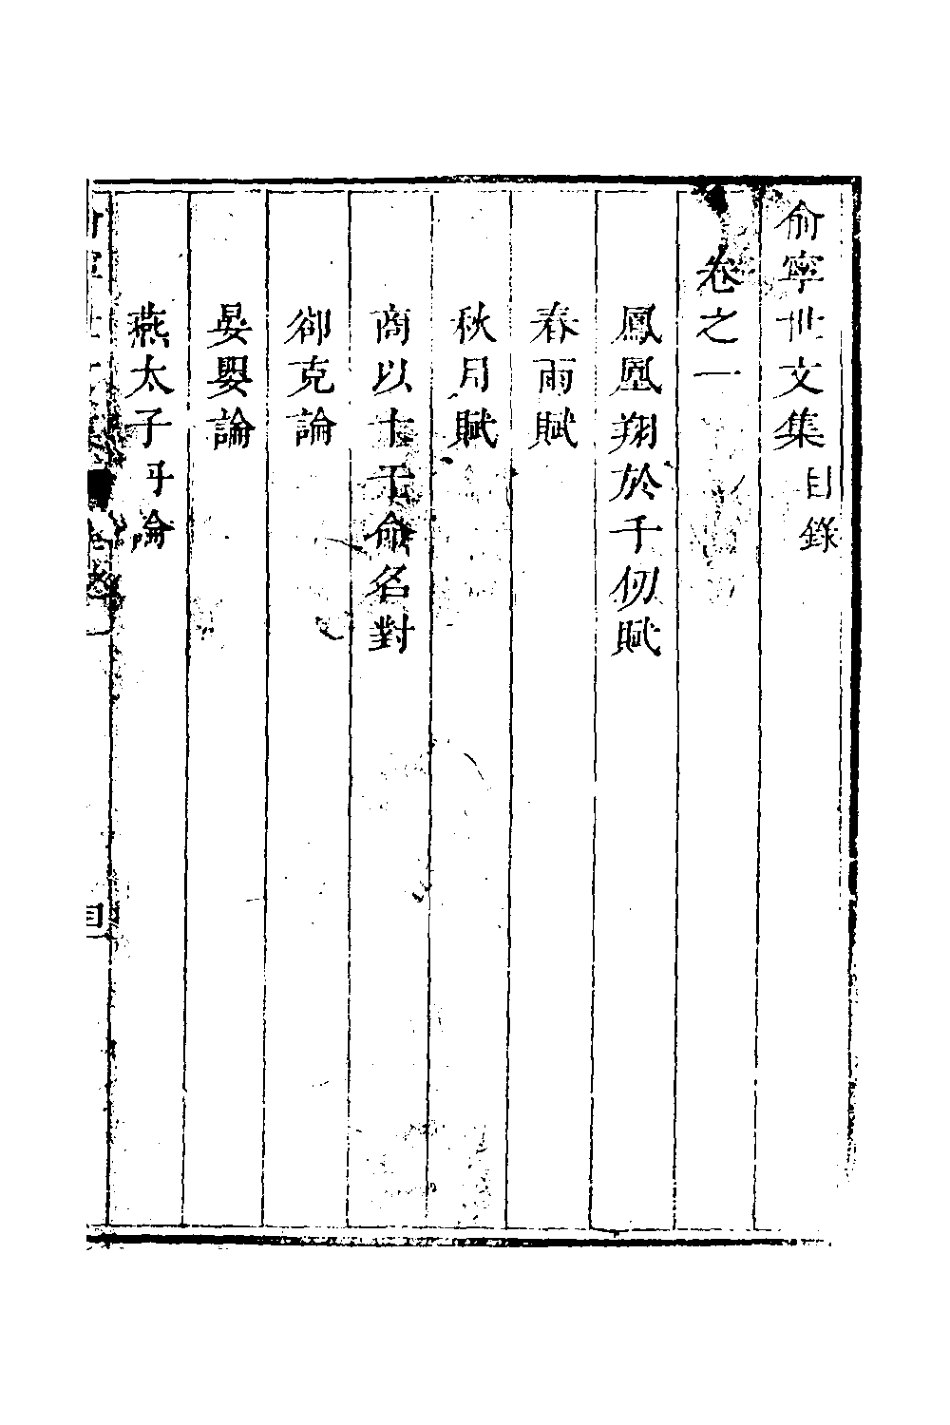 俞寧世文集目錄
卷之一
鳳凰翔於千仞賦
春雨賦
秋月賦
商以十干命名對
郤克論
晏嬰論
燕太子丹論